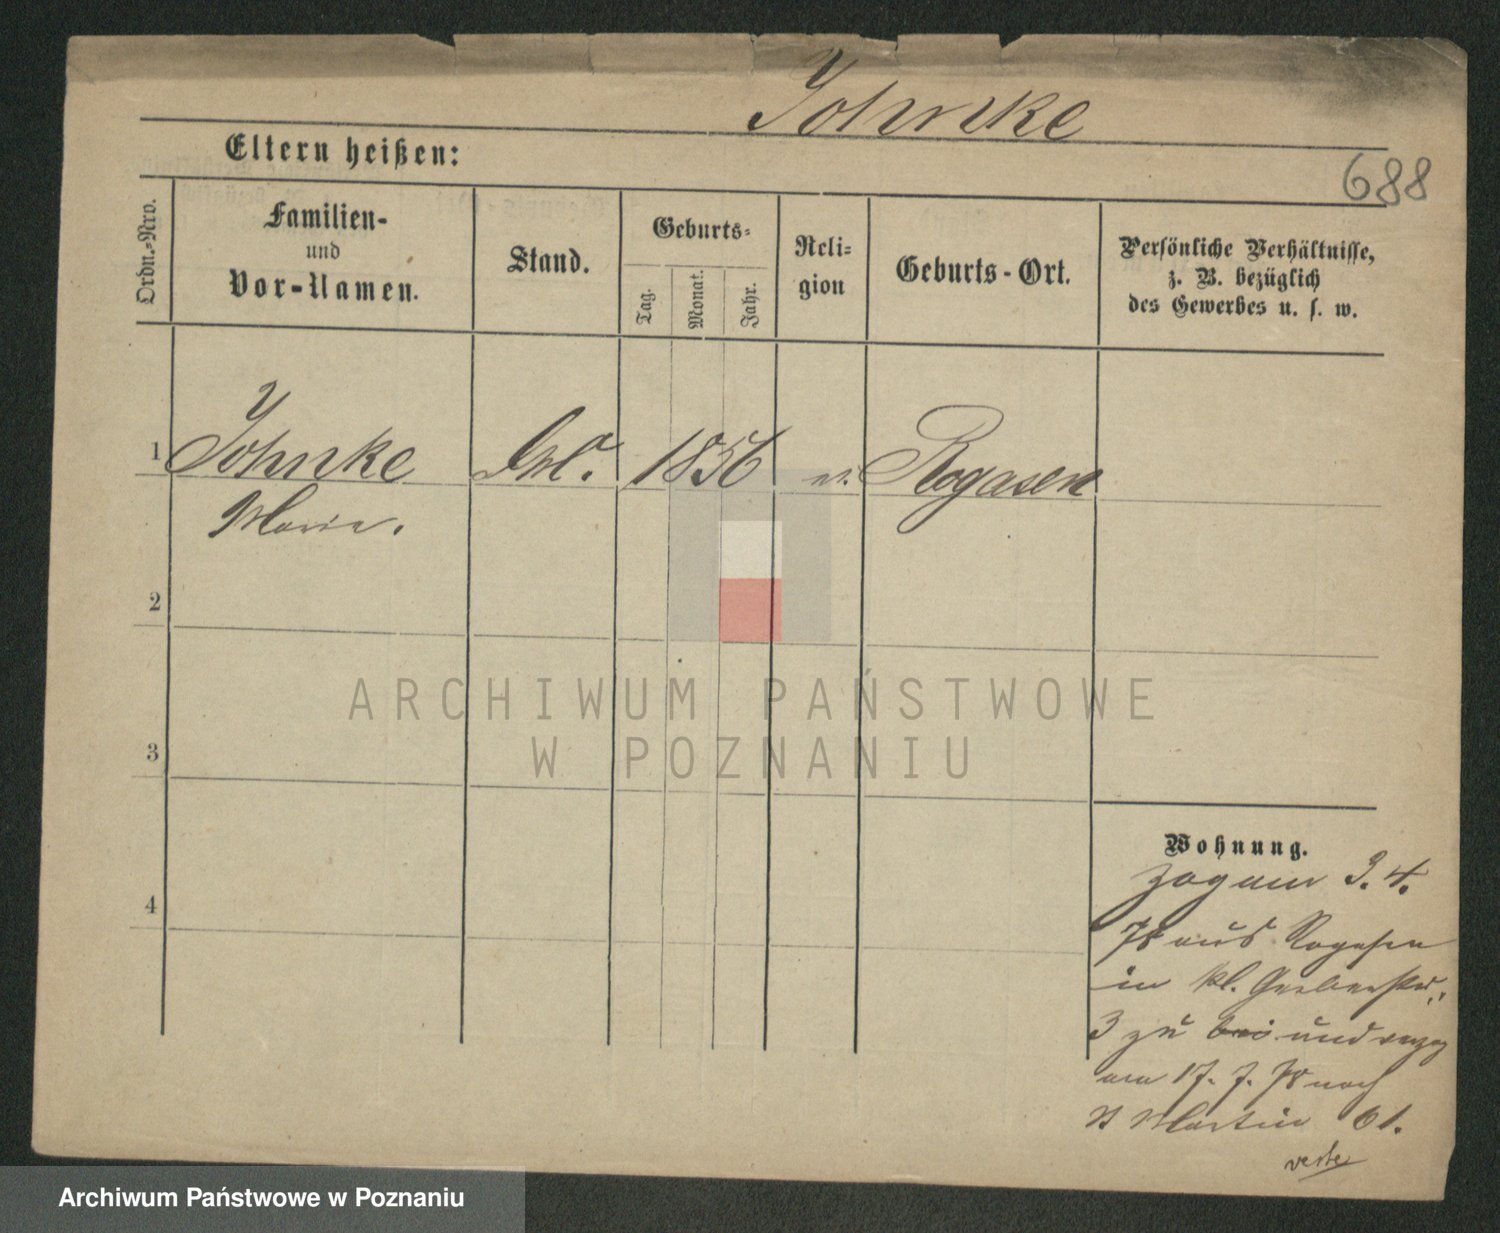 Johnke
Eltern heißen:
688
Ordn.-Nro.
Familien-
und
Vor-Namen.
Stand.
Geburts-
Tag.
Monat.
Jahr.
Reli-
gion
Geburts-Ort.
Persönliche Verhältnisse,
z. B. bezüglich
des Gewerbes u. s. w.
1 Johnke 1856 ev. Rogasen
Marie.
2
3
4
ARCHIWUM PAŃSTWOWE
W POZNANIU
Wohnung.
Zog am 3. 4.
78 aus Rogasen
in kl. Gerberstr.
3 zu und verzog
am 17. 7. 78 nach
St Martin 61.
verte
Archiwum Państwowe w Poznaniu